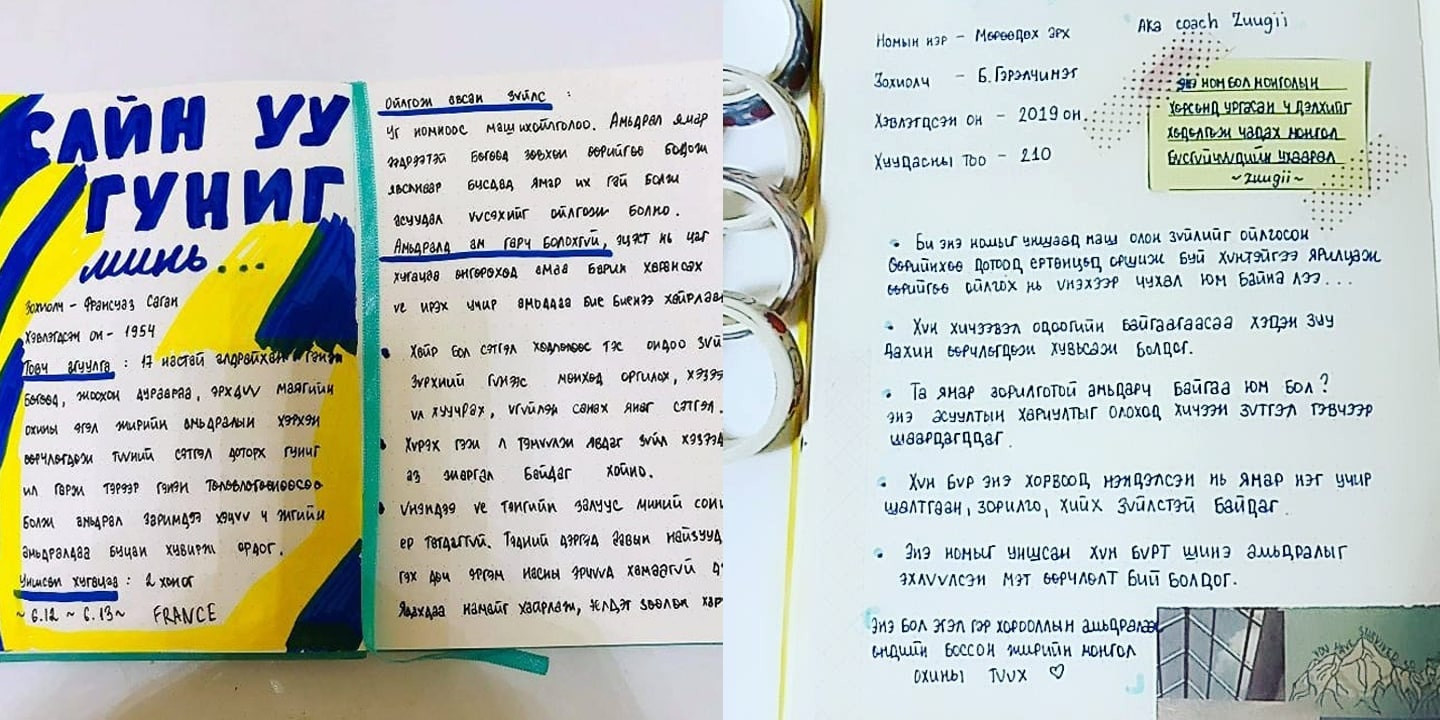 САЙН УУ
ГУНИГ
минь...
Зохиолч - Франсуаз Саган
Хэвлэгдсэн он - 1954
Товч агуулга : 17 настай алдрайхан гэнэн
бөгөөд, жоохон дураараа, эрх дүү маягийн
охины эгэл жирийн амьдралын хэрхэн
өөрчлөгдөж түүний сэтгэл доторх гуниг
ил гарж тэрээр гэнэн төлөвлөгөөнөөсөө
болж амьдрал заримдаа хэцүү ч жгийн
амьдралдаа буцан хувирж ордог.
Уншсан хугацаа : 2 хоног
~ 6.12 ~ 6.13 ~ FRANCE
Ойлгож авсан зүйлс :
Уг номноос маш ихойлголоо. Амьдрал ямар
ээдрээтэй бөгөөд зөвхөн өөрийгөө бодож
явснаар бусдад ямар их гай болж
асуудал үүсэхийг ойлгож болно.
Амьдралд ам гарч болохгүй, эцэст нь цаг
хугацаа өнгөрөхөд амаа барин харамсах
үе ирэх учир амьддаа бие биенээ хайрлаа
Хайр бол сэтгэл хөдлөлөөс тэс ондоо зүй
Зүрхний гүнээс мөнхөд оргилох, хэзээ
үл хуучрах, үгүйлэн санах янаг сэтгэл.
Хүрэх гэж л тэмүүлж явдаг зүйл хэзээд
аз жаргал байдаг хойно.
Үнэндээ үе тэнгийн залуус миний сони
ер татдаггүй. Тэдний дэргэд аавын найзууд
гэх дөч эргэм насны эрчүүд хамаагүй д
Ядахдаа намайг хайрлаж, нэлдэг зөөлөн хар
Номын нэр - Мөрөөдөх эрх
Aka coach Zuugii
Зохиолч - Б. Гэрэлчимэг
Хэвлэгдсэн он - 2019 он.
Хуудасны тоо - 210
Энэ ном бол монголын
хөрсөнд ургасан ч дэлхийг
хөдөлгөж чадах монгол
бүсгүйчүүдийн ухаарал
~ Zuugii ~
Би энэ номыг уншаад маш олон зүйлийг ойлгосон
Өөрийнхөө дотоод ертөнцөд оршиж буй хүнтэйгээ ярилцаж
өөрийгөө ойлгох нь үнэхээр чухал юм байна лээ...
Хүн хичээвэл одоогийн байгаагаасаа хэдэн зуу
дахин өөрчлөгдөж хувьсаж болдог.
Та ямар зорилготой амьдарч байгаа юм бол?
Энэ асуултын хариултыг олоход хичээн зүтгэл гэвчээр
шаардагддаг.
Хүн бүр энэ хорвоод мэндэлсэн нь ямар нэг учир
шалтгаан, зорилго, хийх зүйлстэй байдаг.
Энэ номыг уншсан хүн бүрт шинэ амьдралыг
эхлүүлсэн мэт өөрчлөлт бий болдог.
Энэ бол эгэл гэр хорооллын амьдралаас
өндийн боссон жирийн монгол
охины түүх ♡
YOU HAVE SURVIVED SO